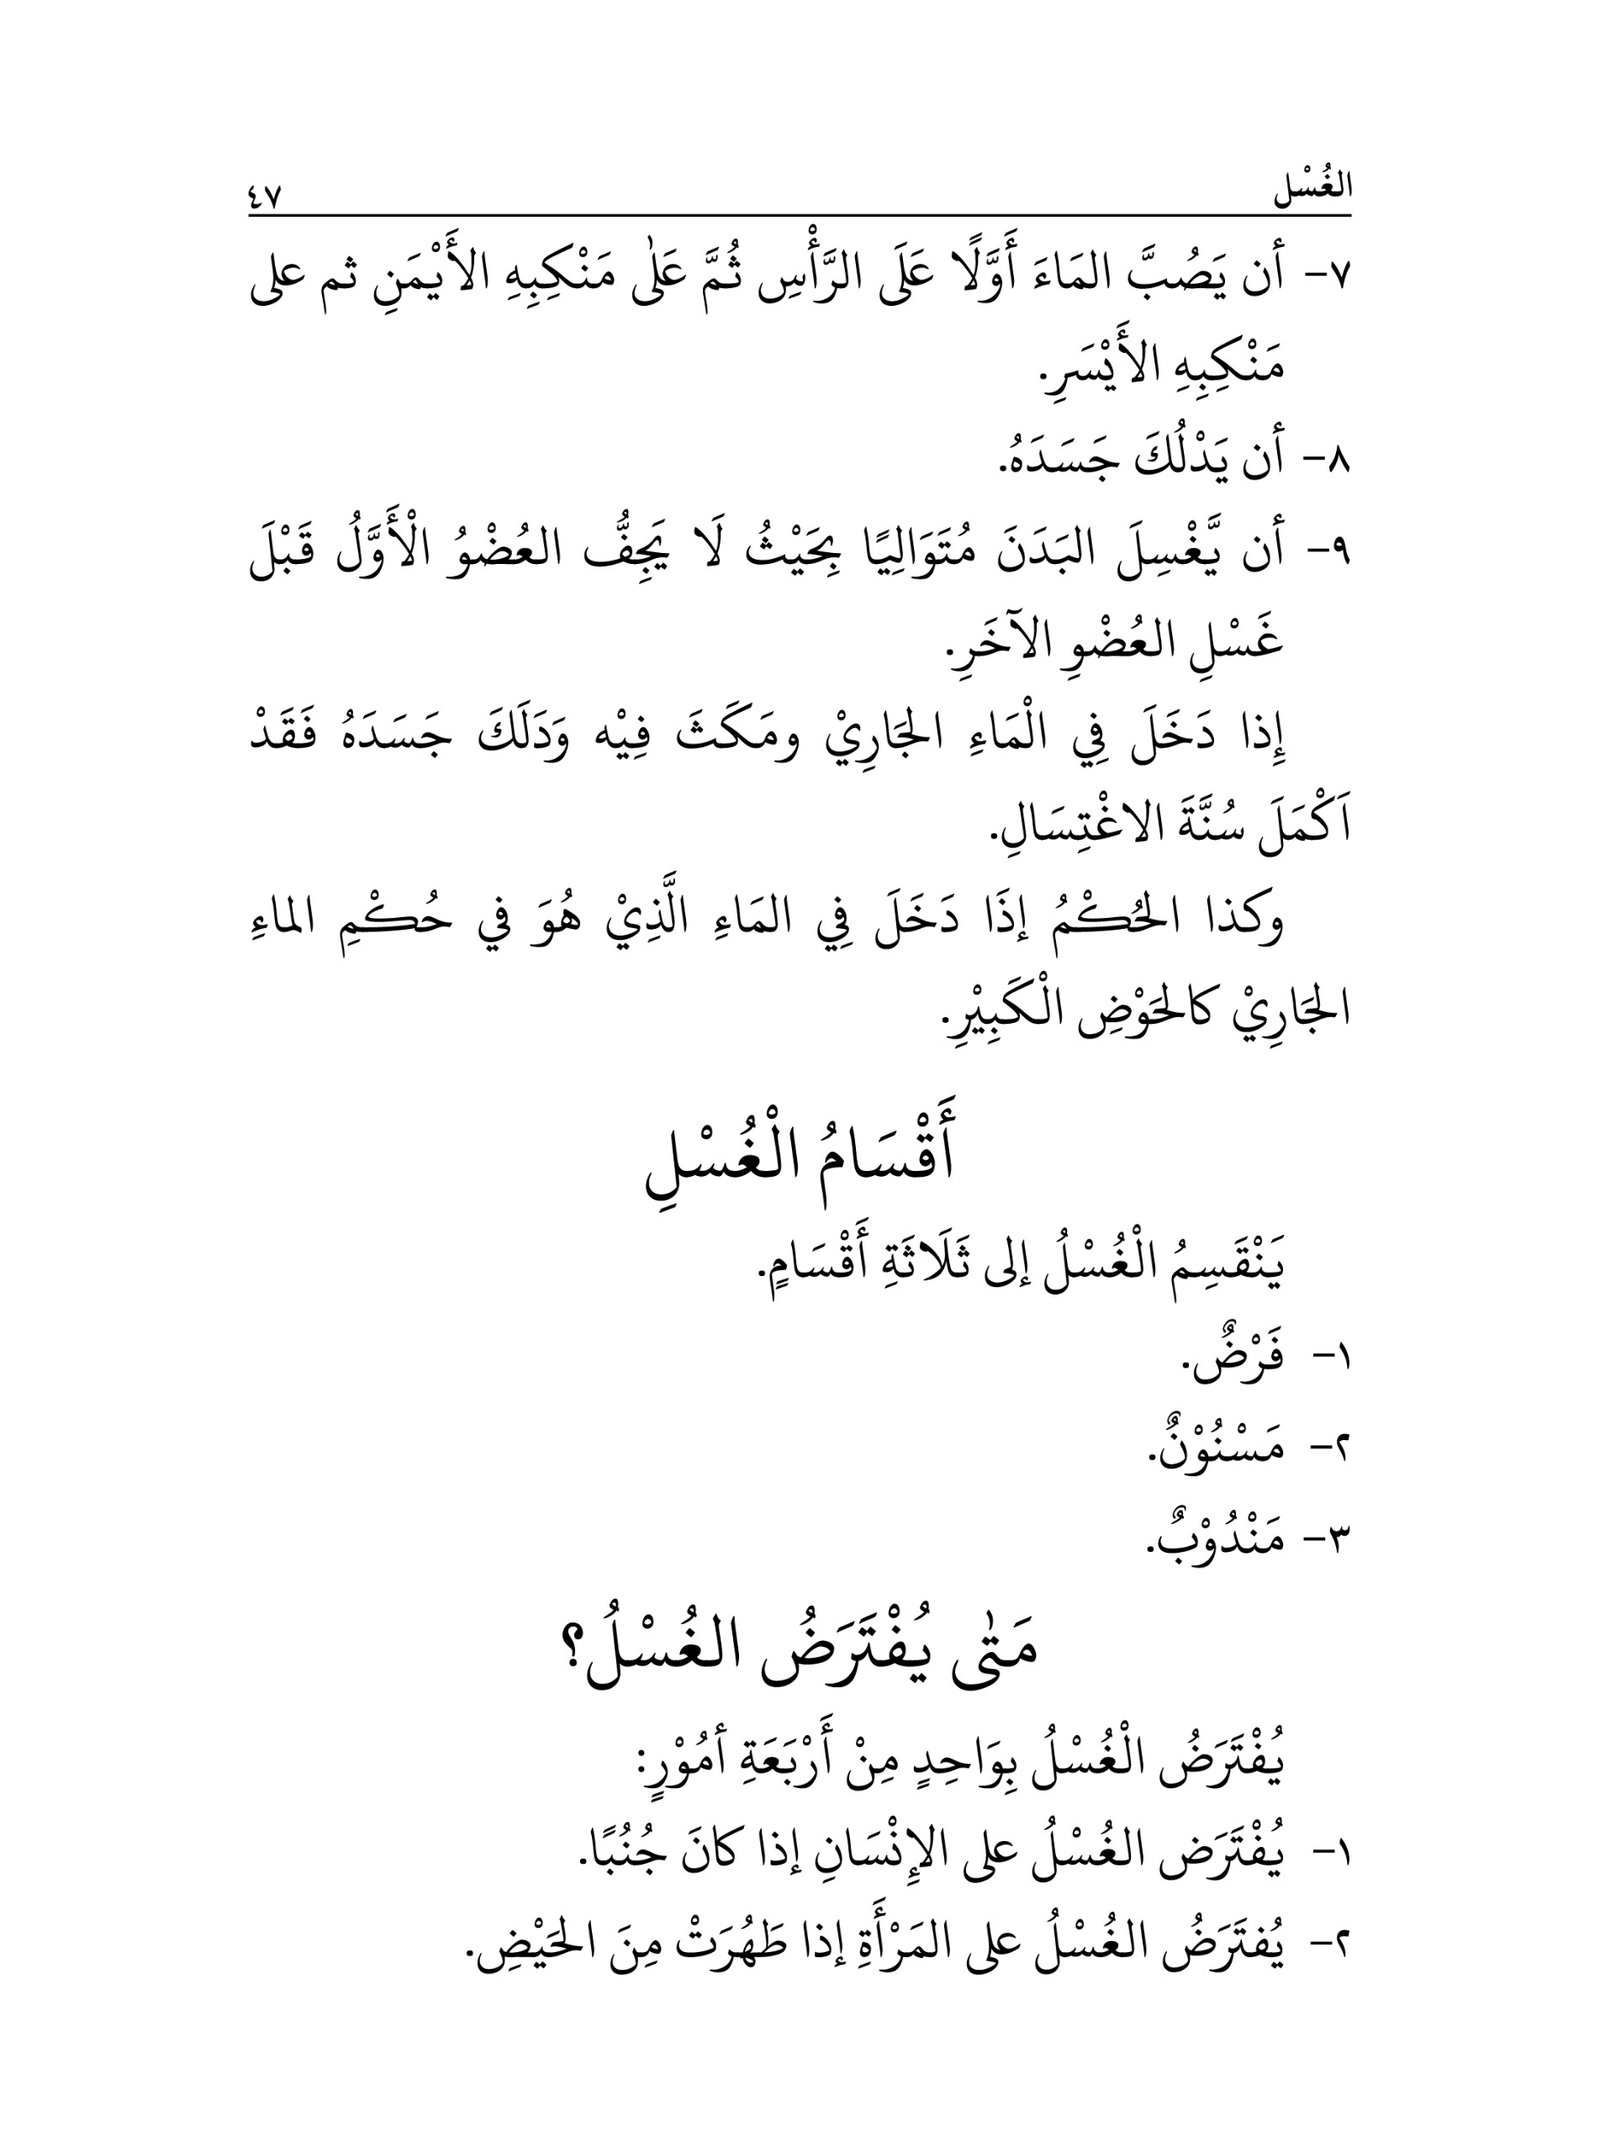 الغُسْل
٤٧
٧- أن يَصُبَّ المَاءَ أَوَّلًا عَلَى الرَّأْسِ ثُمَّ عَلٰى مَنْكِبِهِ الأَيْمَنِ ثم على
مَنْكِبِهِ الأَيْسَرِ.
٨- أن يَدْلُكَ جَسَدَهُ.
٩- أن يَّغْسِلَ البَدَنَ مُتَوَالِيًا بِحَيْثُ لَا يَجِفُّ العُضْوُ الْأَوَّلُ قَبْلَ
غَسْلِ العُضْوِ الآخَرِ.
إِذا دَخَلَ فِي الْمَاءِ الجَارِيْ ومَكَثَ فِيْه وَدَلَكَ جَسَدَهُ فَقَدْ
اَكْمَلَ سُنَّةَ الاغْتِسَالِ.
وكذا الحُكْمُ إذَا دَخَلَ فِي المَاءِ الَّذِيْ هُوَ في حُكْمِ الماءِ
الجَارِيْ كالحَوْضِ الْكَبِيْرِ.
أَقْسَامُ الْغُسْلِ
يَنْقَسِمُ الْغُسْلُ إلى ثَلَاثَةِ أَقْسَامٍ.
١- فَرْضٌ.
٢- مَسْنُوْنٌ.
٣- مَنْدُوْبٌ.
مَتٰى يُفْتَرَضُ الغُسْلُ؟
يُفْتَرَضُ الْغُسْلُ بِوَاحِدٍ مِنْ أَرْبَعَةِ أمُوْرٍ:
١- يُفْتَرَض الغُسْلُ على الإِنْسَانِ إذا كانَ جُنُبًا.
٢- يُفتَرَضُ الغُسْلُ على المَرْأَةِ إذا طَهُرَتْ مِنَ الحَيْضِ.